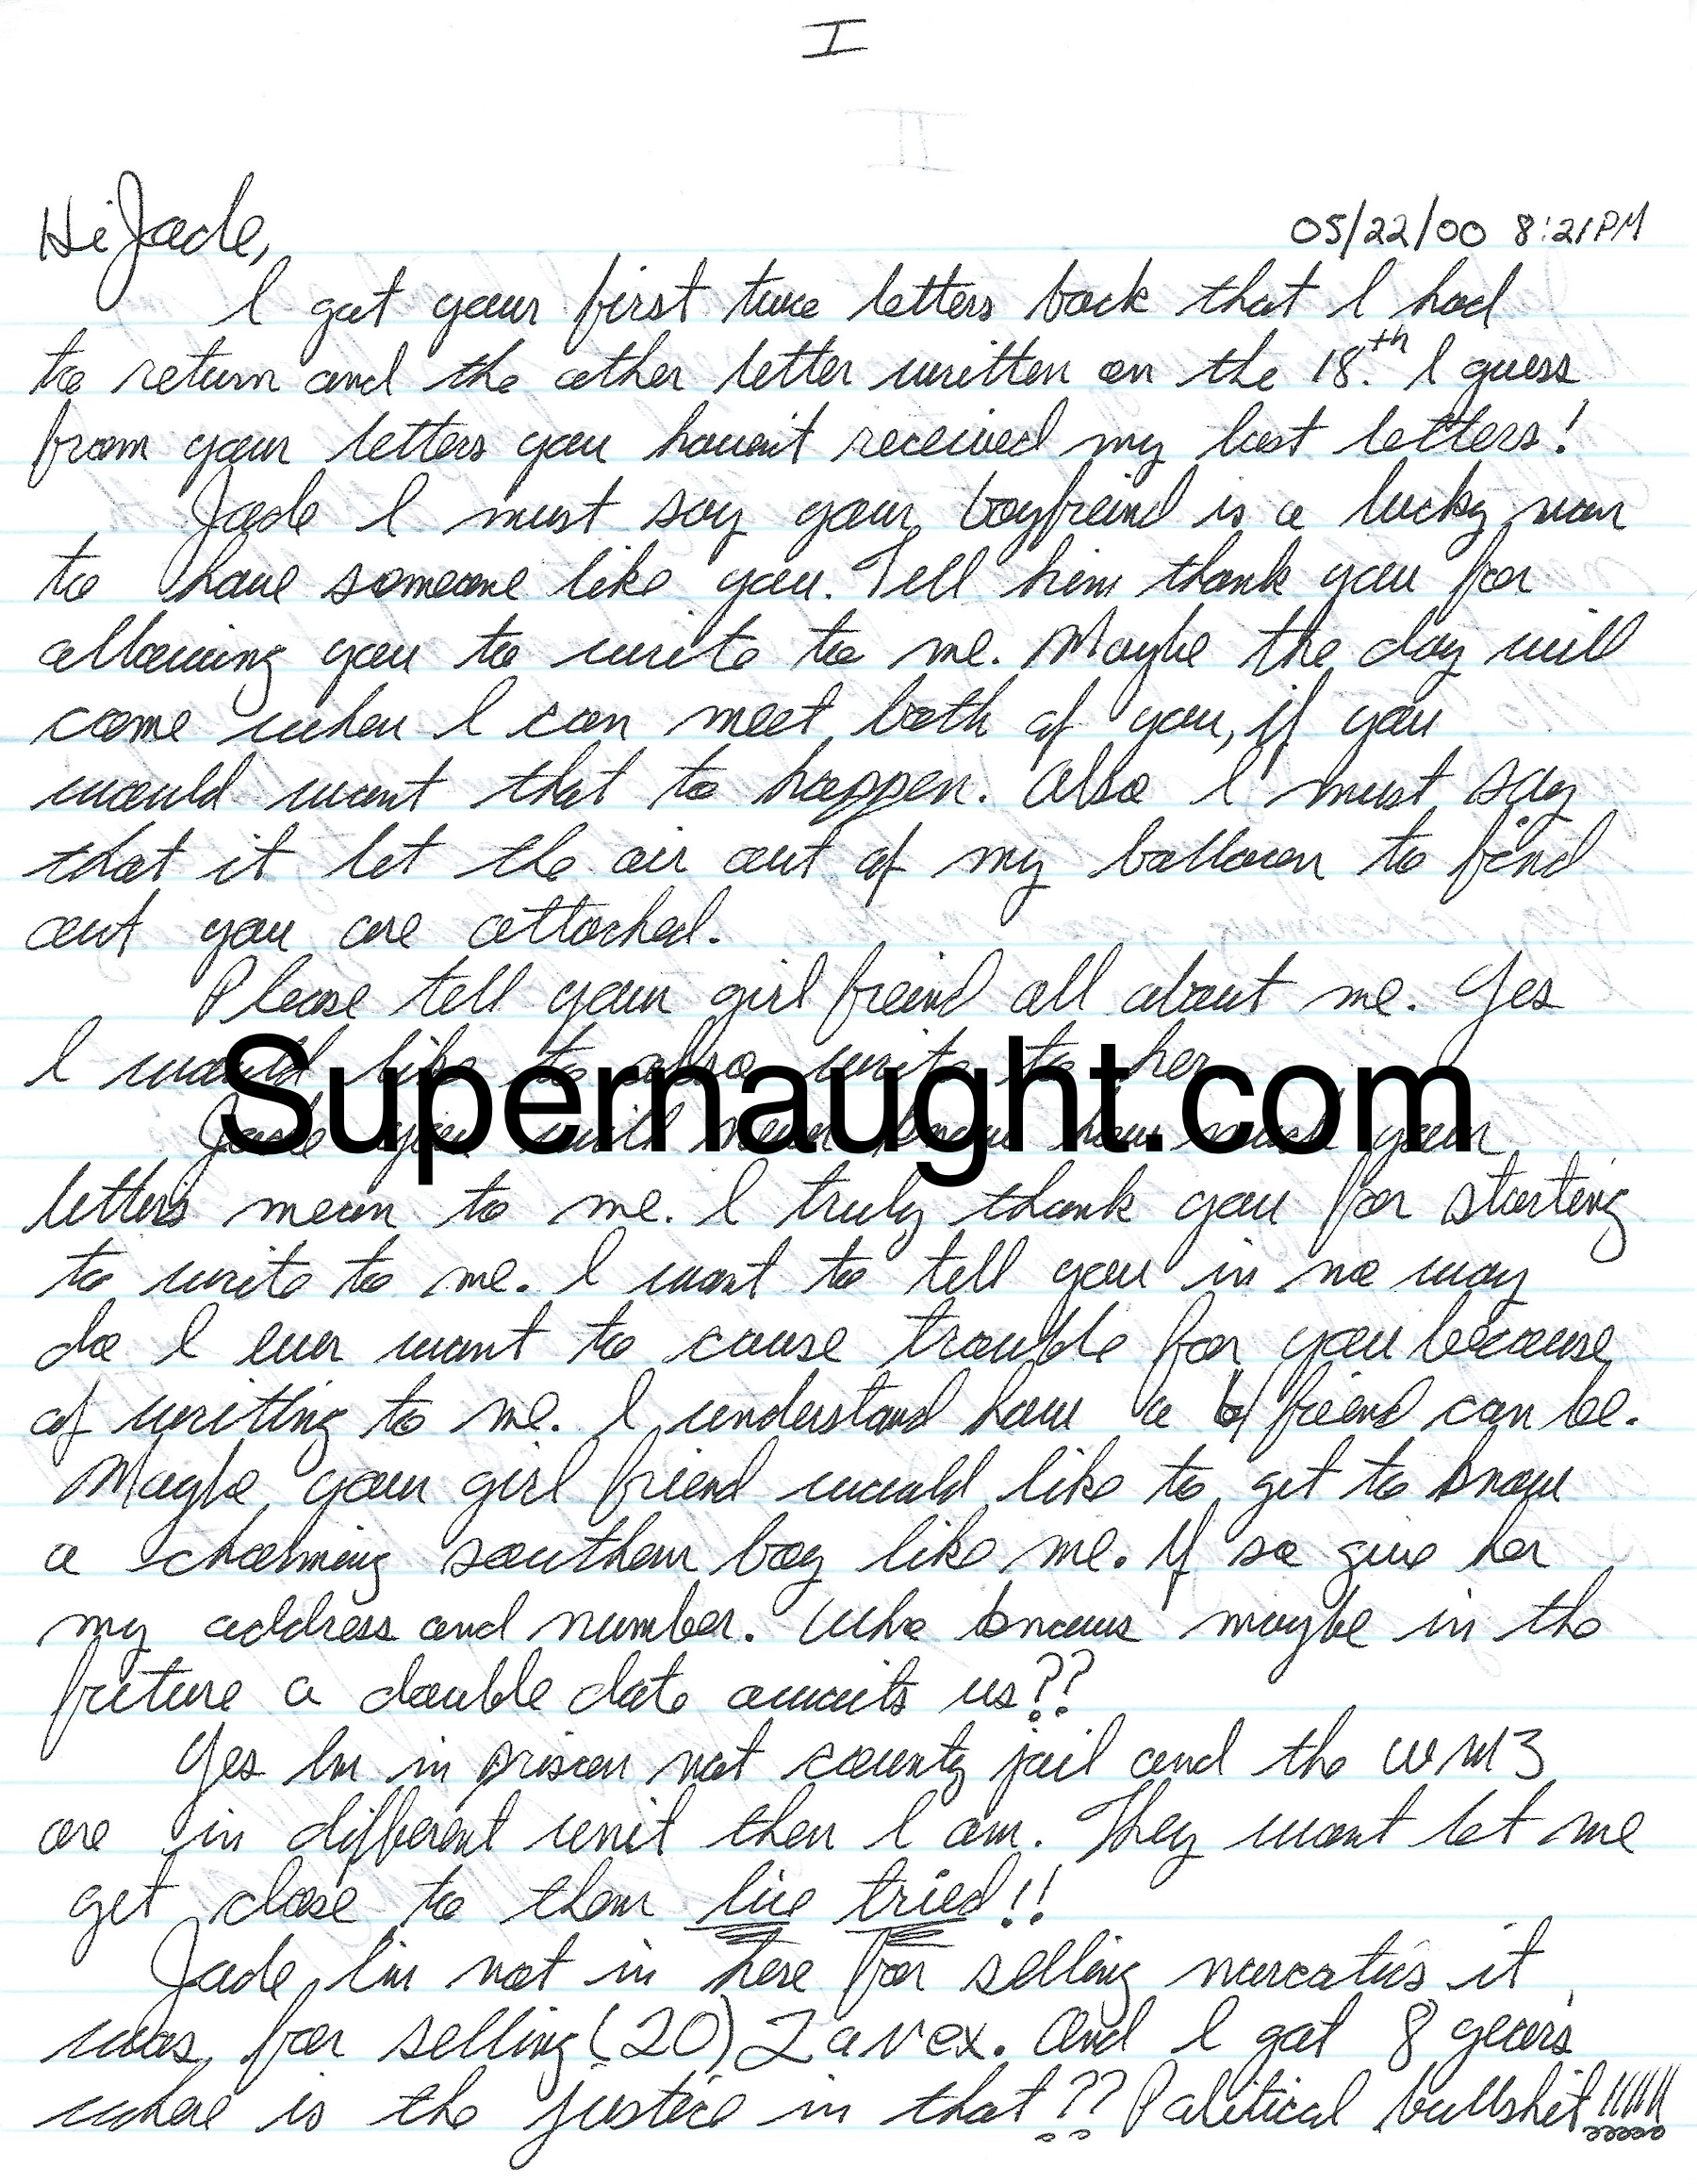 I
II
Hi Jade, 05/22/00 8:21PM
I got your first two letters back that I had
to return and the other letter written on the 18th. I guess
from your letters you haven't received my last letters!
Jade I must say your boyfreind is a lucky man
to have someone like you. Tell him thank you for
allowing you to write to me. Maybe the day will
come when I can meet both of you, if you
would want that to happen. Also I must say
that it let the air out of my balloon to find
out you are attached.
Please tell your girl freind all about me. Yes
I would like to also write to her
Supernaught.com
Jade you will never know how much your
letters mean to me. I truly thank you for starting
to write to me. I want to tell you in no way
do I ever want to cause trouble for you because
of writting to me. I understand how a b/freind can be.
Maybe your girl friend would like to get to know
a charming southern boy like me. If so give her
my address and number. Who knows maybe in the
future a double date awaits us??
Yes Im in prison not county jail and the WM3
are in different unit then I am. They wont let me
get close to them Iive tried!!
Jade, I'm not in here for selling narcotics it
was for selling (20) Zavex. And I got 8 years
where is the justice in that?? Political bullshit!!!!!